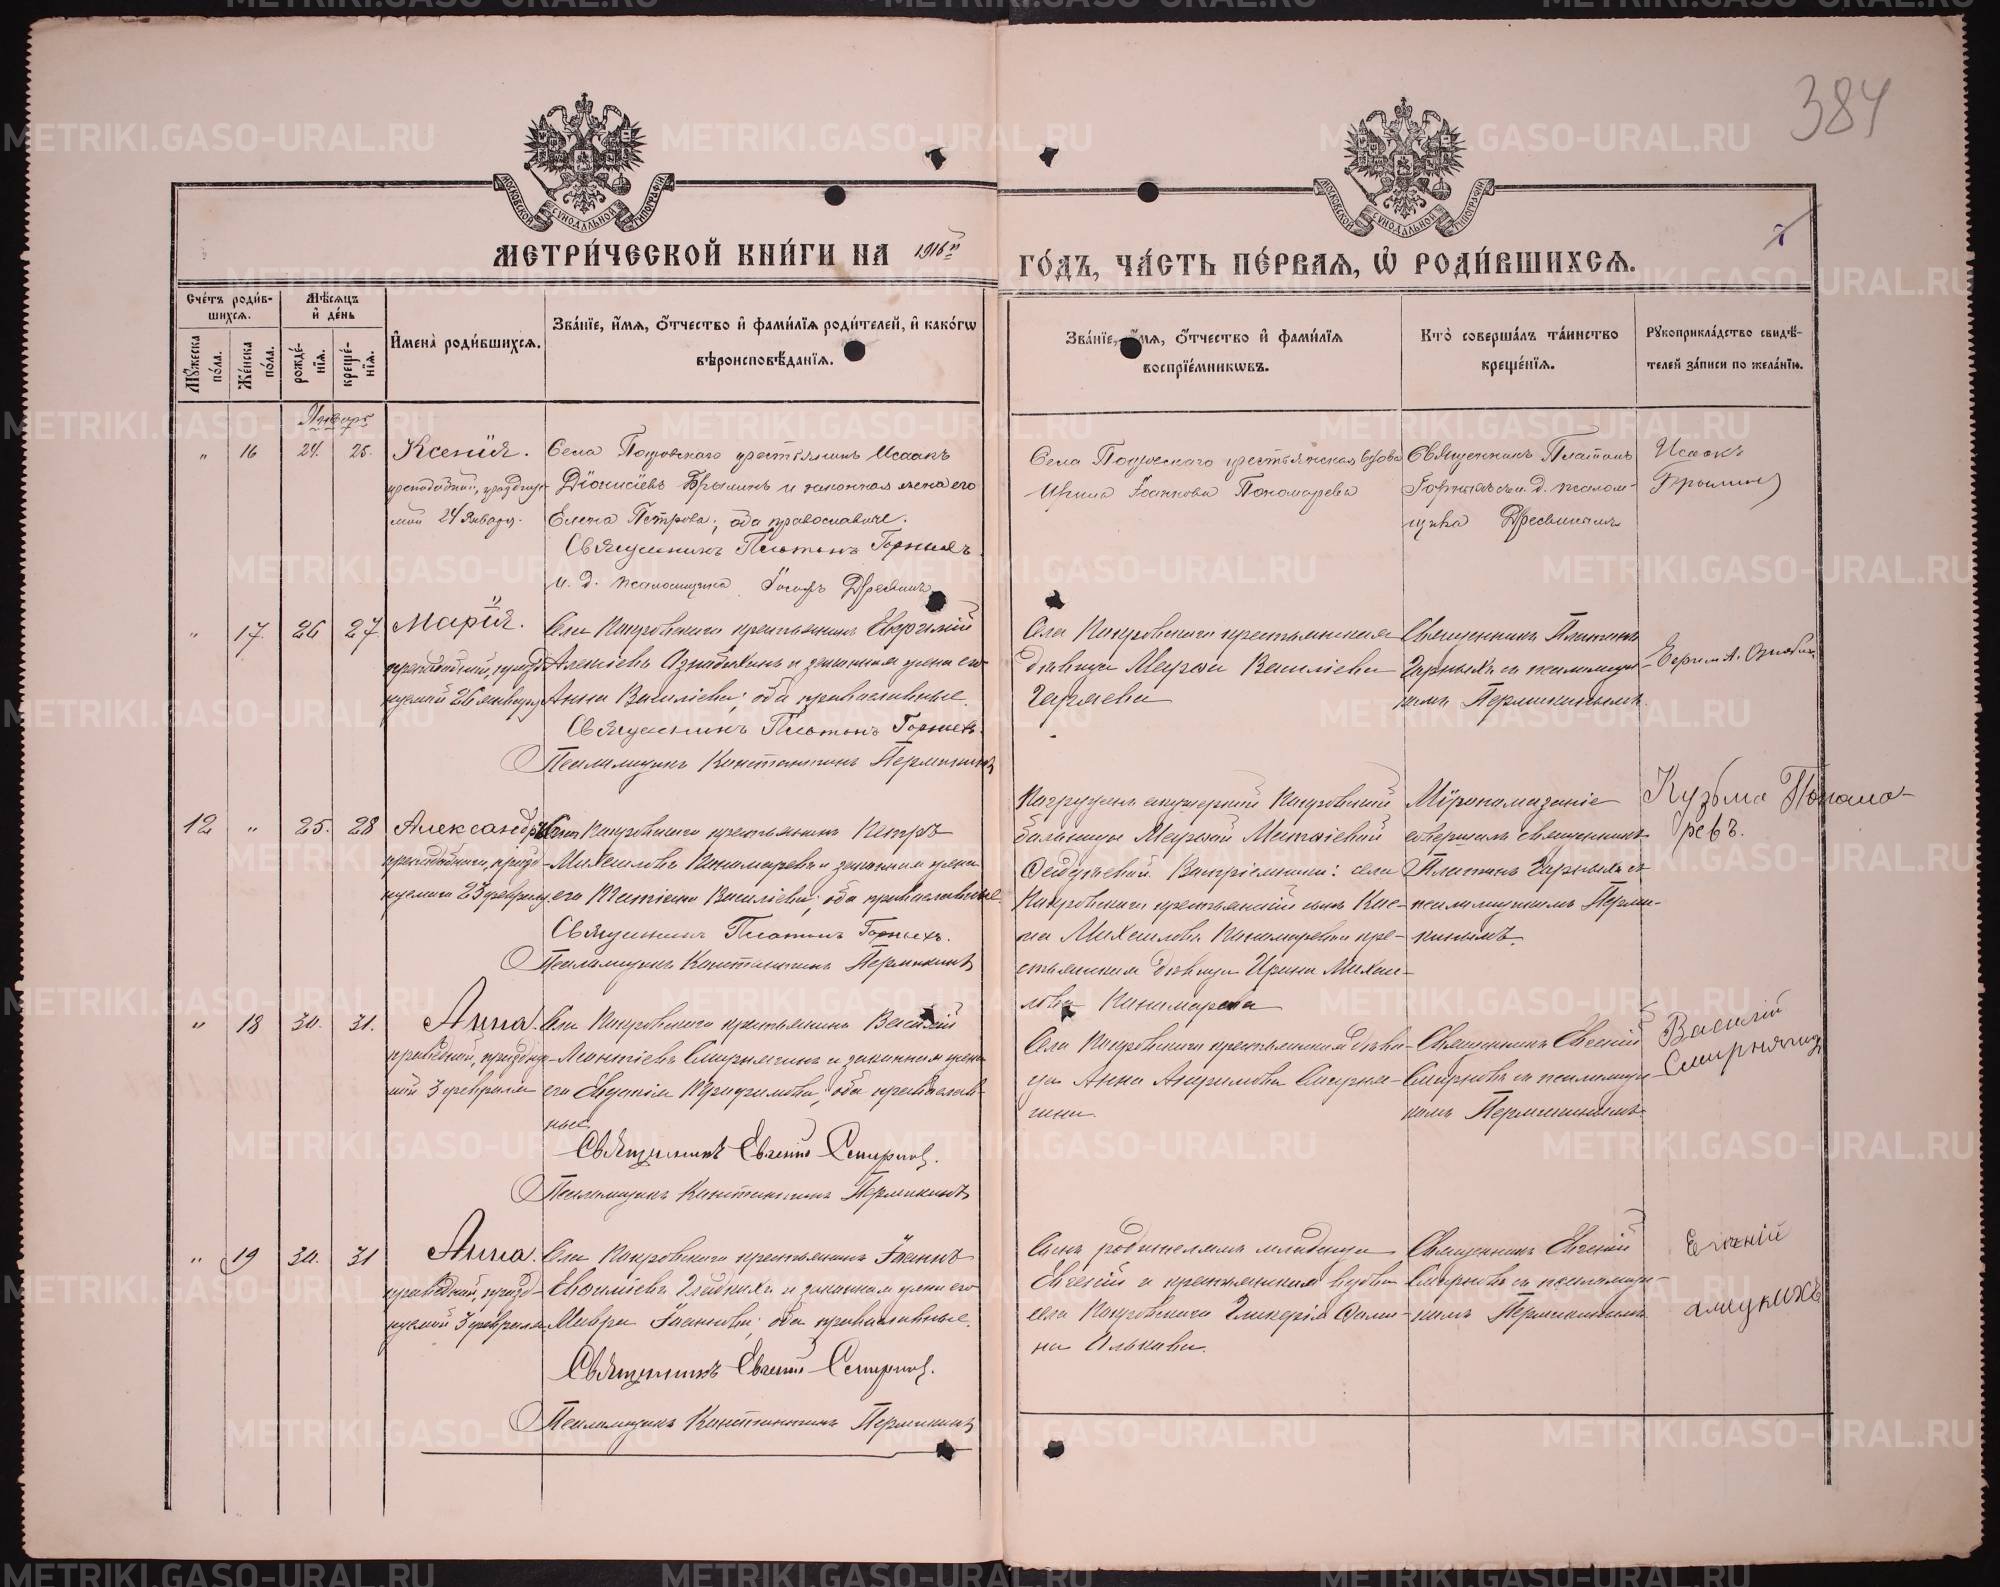 384
МЕТРИ́ЧЕСКОЙ КНИ́ГИ НА 1916й ГО́ДЪ, ЧА́СТЬ ПЕ́РВАЯ, Ѡ РОДИ́ВШИХСЯ.
Сче́тъ роди́в-
шихся.
Мѣ́сяцъ
и҆ де́нь
Мꙋ́жеска по́ла.
Же́нска по́ла.
рожде́-
нїя.
креще́-
нїя.
И҆мена̀ роди́вшихся.
Зва́нїе, и҆́мя, ѻ҆́тчество и҆ фами́лїя роди́телей, и҆ како́гѡ
вѣроисповѣ́данїя.
Зва́нїе, и҆́мя, ѻ҆́тчество и҆ фами́лїя
воспрїе́мникѡвъ.
Кто̀ соверша́лъ та́инство
креще́нїя.
Рꙋкоприкла́дство свидѣ́-
телей за́писи по жела́нїю.
Январь
" 16 24. 25. Ксенія.
преподобной, праздну-
мой 24 Января.
Села Покровскаго крестьянинъ Исаакъ
Діонисіевъ Брылинъ и законная жена его
Елена Петрова; оба православные.
Священникъ Платонъ Горныхъ.
и. д. псаломщика Іосифъ Дресвинъ
Села Покровскаго крестьянская вдова
Ирина Іоаннова Пономарева
Священникъ Платонъ
Горныхъ съ и. д. псалом-
щика Дресвинымъ
Исаакъ
Брылинъ
" 17. 26 27 Марія.
преподобной, празд-
нуемой 26 января
Села Покровскаго крестьянинъ Евфимій
Алексіевъ Ознобихинъ и законная жена его
Анна Василіева; оба православные.
Священникъ Платонъ Горныхъ.
Псаломщикъ Константинъ Пермикинъ
Села Покровскаго крестьянская
дѣвица Василіева
Священникъ Платонъ
Горныхъ съ псаломщи-
комъ Пермикинымъ.
12 " 25. 28 Александръ
преподобнаго, празд-
нуемаго 23 февраля
Села Покровскаго крестьянинъ Петръ
Михаиловъ Пономаревъ и законная жена
его Василіева; оба православные.
Священникъ Платонъ Горныхъ.
Псаломщикъ Константинъ Пермикинъ
Погруженъ акушеркой Покровской
больницы
Воспріемники: села
Покровскаго крестьянскій сынъ
Михаиловъ Пономаревъ и кре-
стьянская дѣвица Ирина Михаи-
лова Пономарева
Мѵропомазаніе
совершилъ священникъ
Платонъ Горныхъ съ
псаломщикомъ Перми-
кинымъ.
Кузьма Понома-
ревъ.
" 18 30. 31. Анна.
праведной, празднуе-
мой 3 февраля
Села Покровскаго крестьянинъ Василій
Леонтіевъ Смирнягинъ и законная жена
его Евдокія; оба православ-
ные.
Священникъ Евгеній Смирновъ.
Псаломщикъ Константинъ Пермикинъ
Села Покровскаго крестьянская дѣви-
ца Анна Смирня-
гина.
Священникъ Евгеній
Смирновъ съ псаломщи-
комъ Пермикинымъ.
Василій
Смирнягинъ
" 19 30. 31 Анна.
праведной, празд-
нуемой 3 февраля
Села Покровскаго крестьянинъ Іоаннъ
Гладкихъ и законная жена его
Мавра Іоаннова; оба православные.
Священникъ Евгеній Смирновъ.
Псаломщикъ Константинъ Пермикинъ
Сынъ родителямъ младенца
Евгеній и крестьянская вдова
села Покровскаго Гликерія
Священникъ Евгеній
Смирновъ съ псаломщи-
комъ Пермикинымъ
Евгеній